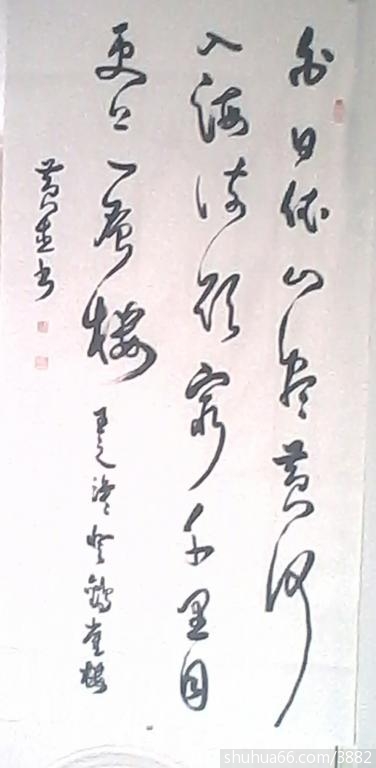 白日依山尽黄河
入海流欲穷千里目
更上一层楼
王之涣登鹳雀楼
黄生书
shuhua66.com/3882